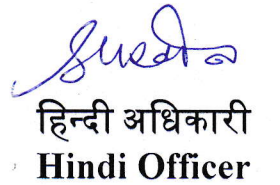 हिन्दी अधिकारी
Hindi Officer